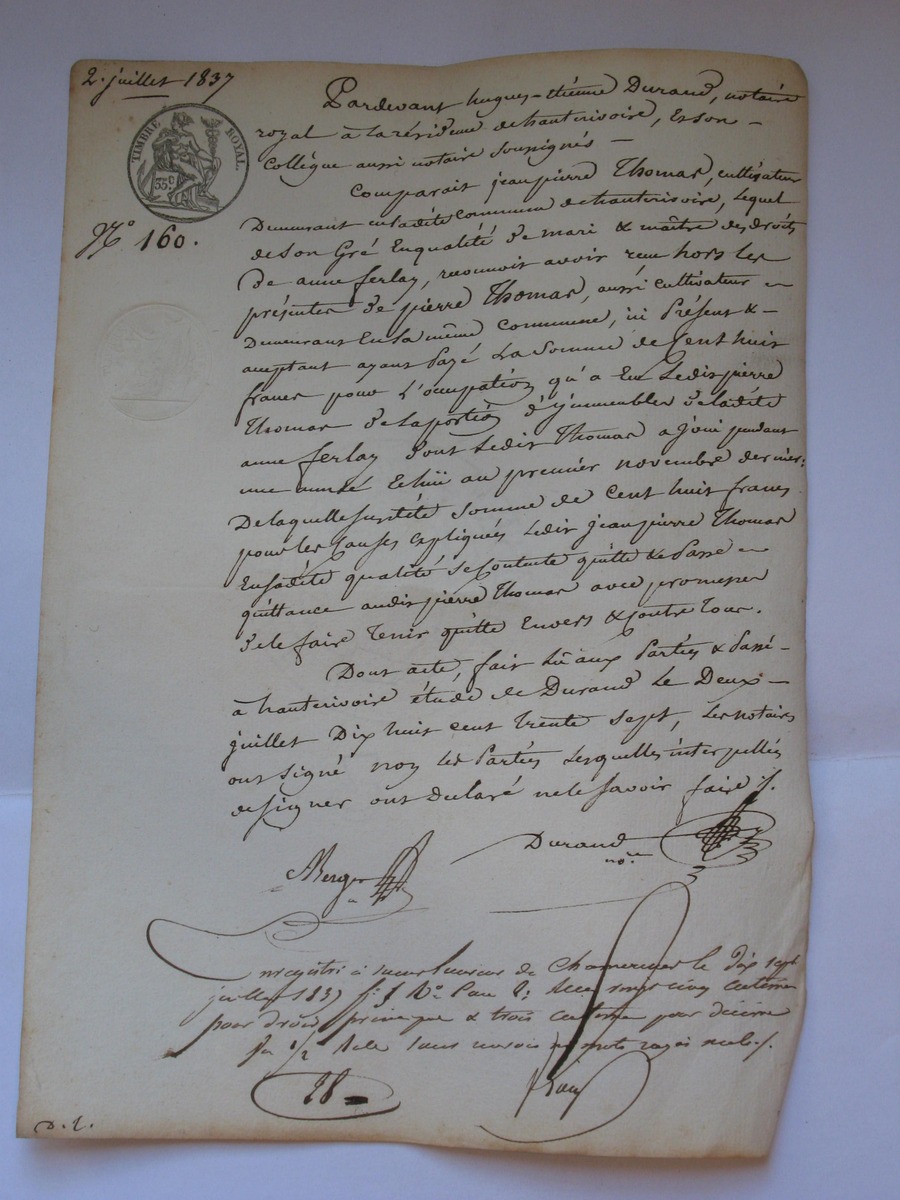 2. juillet 1837
TIMBRE ROYAL.
35c
N° 160.
Pardevant hugues-étiénne Durand, notaire
royal à la résidense de hauterivoire, Et son -
Collègue aussi notaire soussignés -
Comparait jeanpierre Thomas, cultivateur
Demeurant en ladite commune de hauterivoire, Lequel
de Son Gré Enqualité de mari & maître des droits
De anne ferlay, reconnoit avoir reçu hors les
présentes de pierre Thomas, aussi cultivateur
Demeurant En la même commune, ici Présent & -
acceptant ayant Payé La Somme de Cent huit
francs pour L'ocupation qu'a Eu Ledit pierre
Thomas de la portion d'ymmeubles de ladite
anne ferlay dont Ledit Thomas a joui pendant
une année Echüe au premier novembre dernier:
De laquelle susdite Somme de Cent huit francs
pour les Causes expliquées Ledit jeanpierre Thomas
En sadite qualité Se Contente quitte & Passe
quittance audit pierre Thomas avec promesse
de le faire Tenir quitte Envers & Contre Tous.
Dont acte, fait Lû aux Parties & Passé -
à hauterivoire étude de Durand Le Deux -
juillet Dix huit cent trente Sept, Les notaires
ont Signé non les Parties Lesquelles interpellés
de signer ont declaré ne le Savoir faire
Durand
no.re
Merge
Enregistré à de le Dix sept
juillet 1837 f: N° Case vingt cinq centimes
pour droit principal & trois centimes pour décime
28
D. L.